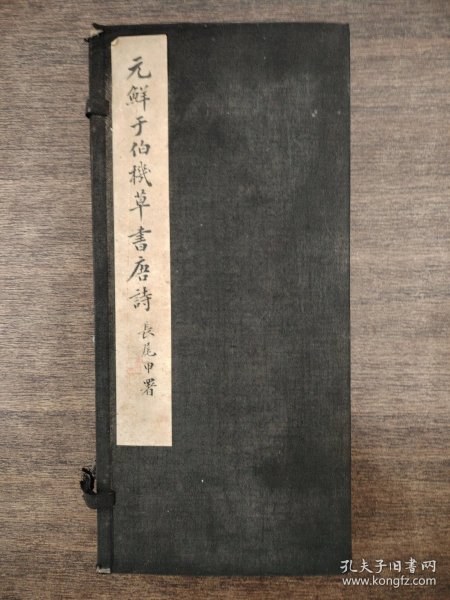 元鮮于伯機草書唐詩
長尾甲署
孔夫子旧书网
www.kongfz.com